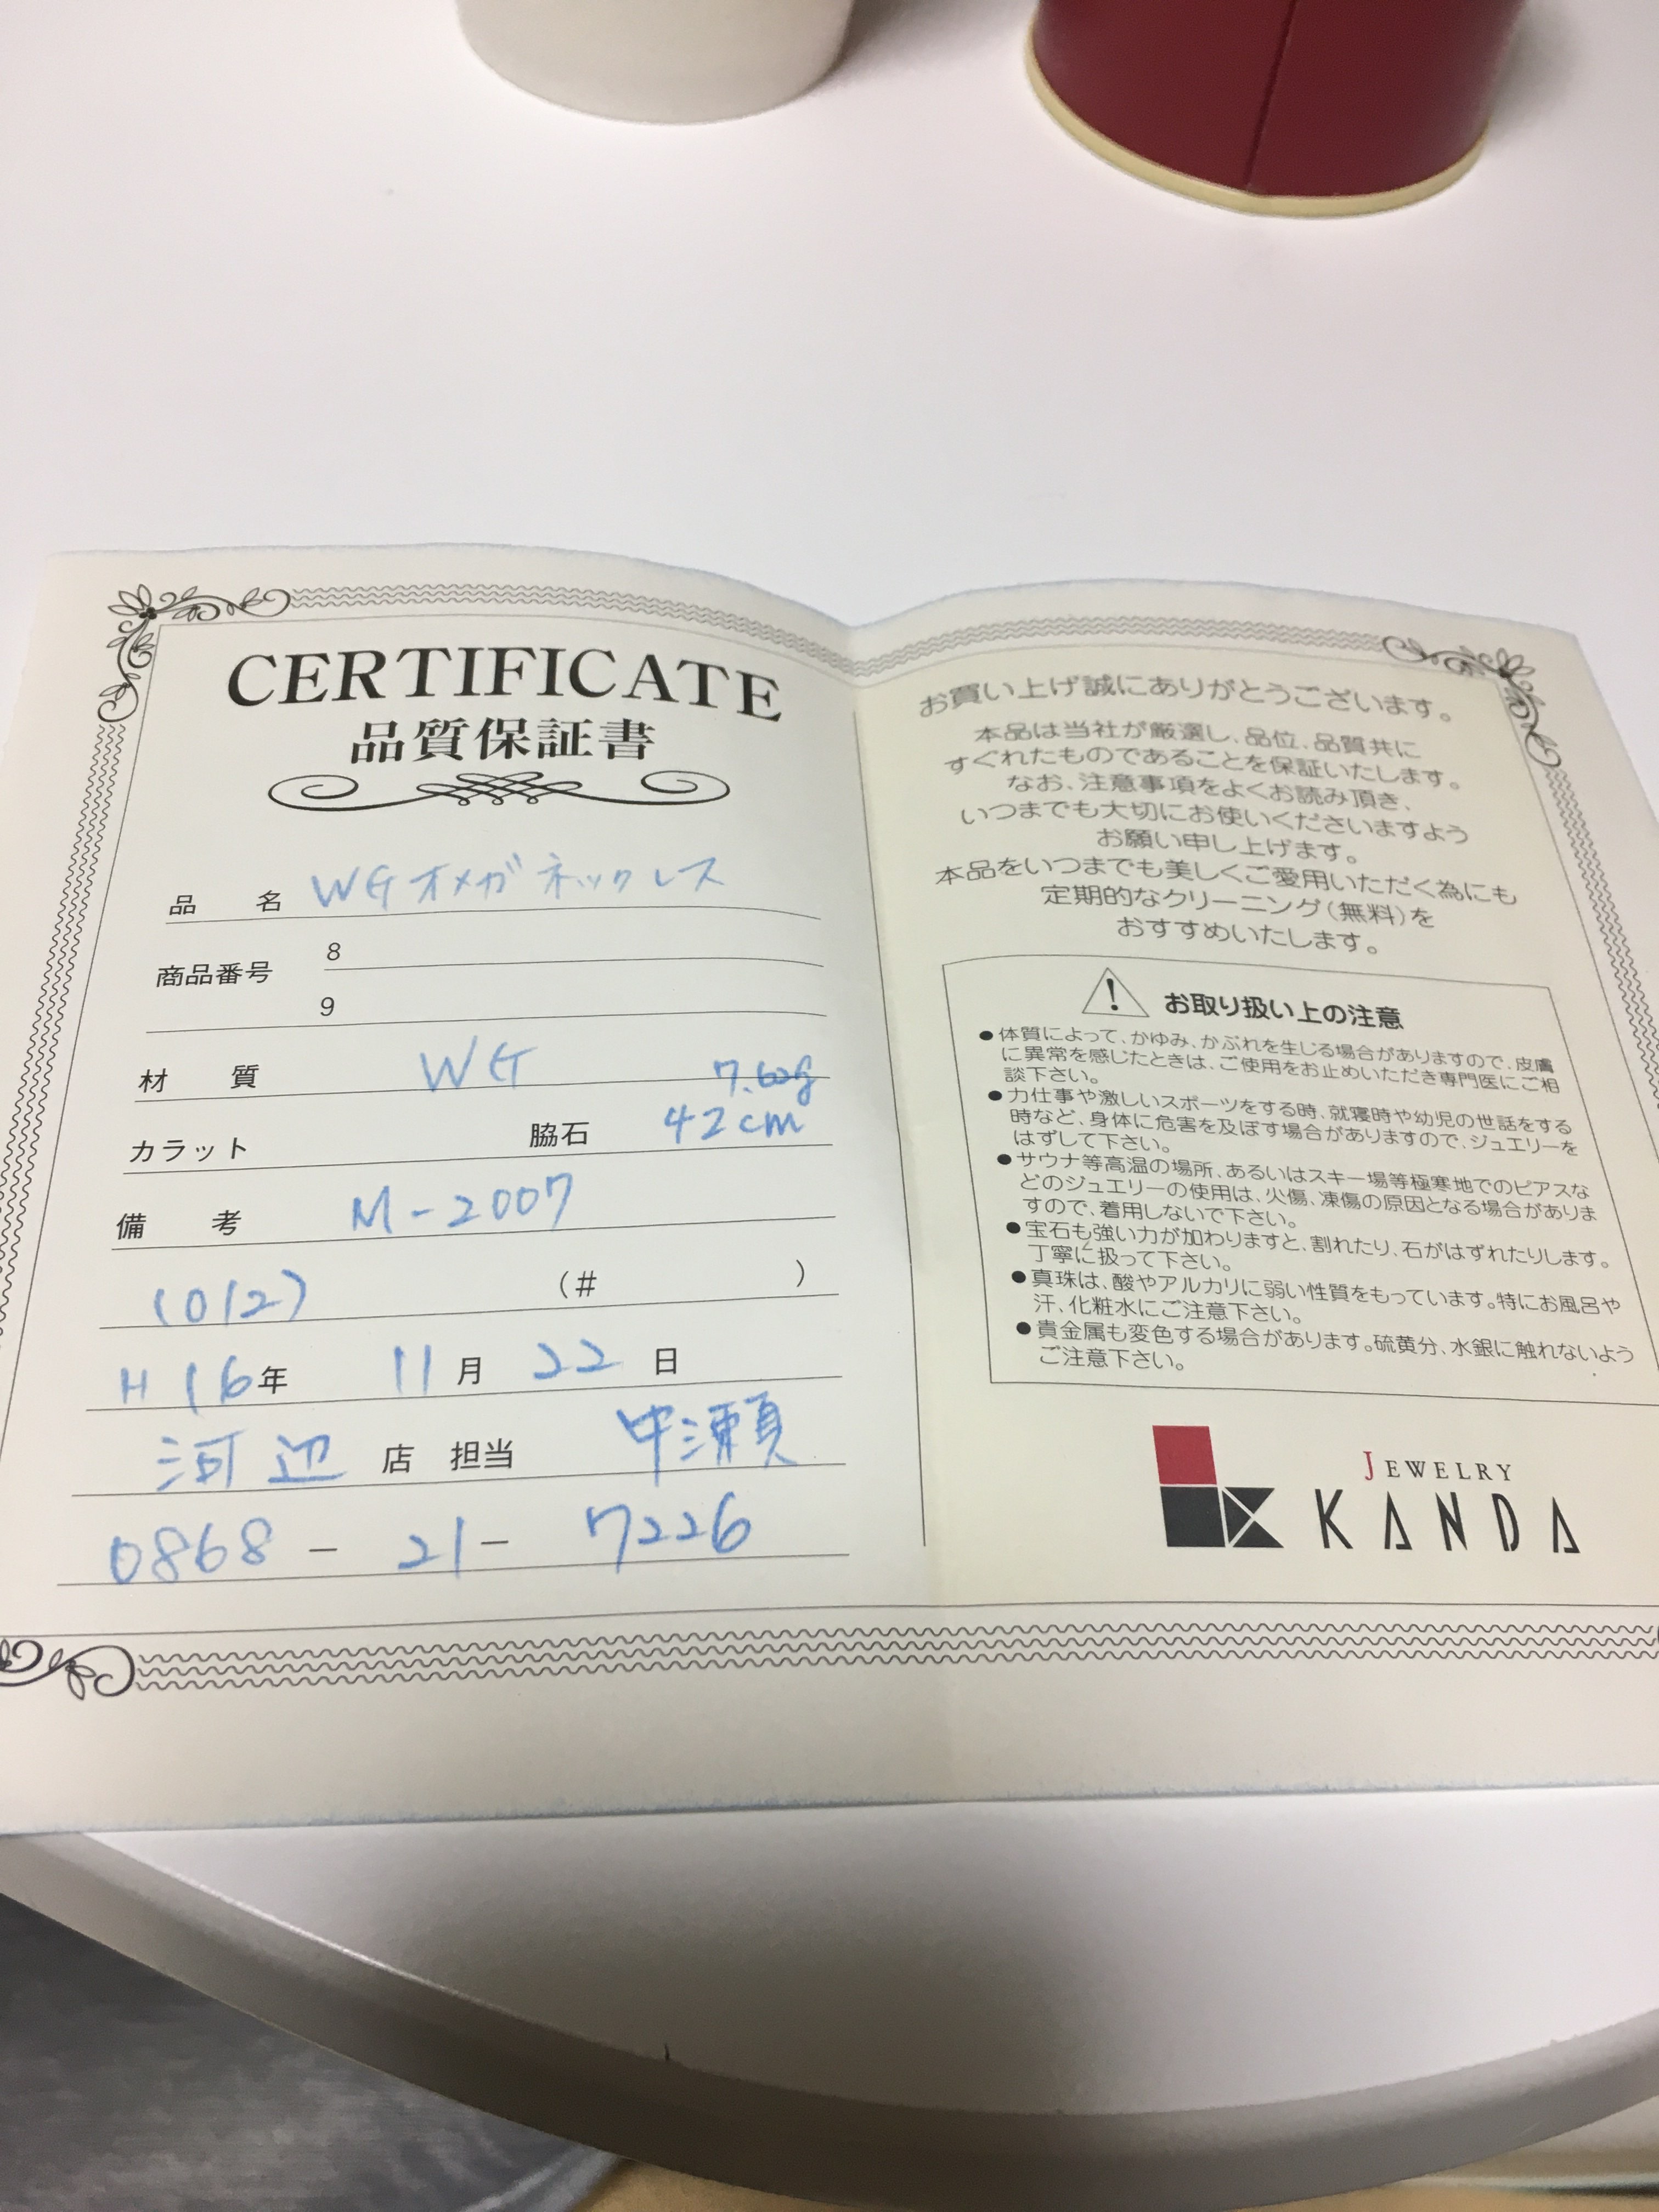 CERTIFICATE
品質保証書
品 名 WGオメガネックレス
商品番号 8
9
材 質 WG 7.62g
カラット 脇石 42cm
備 考 M-2007
(012) (# )
H16年 11月 22日
河辺 店 担当 中瀬
0868 - 21 - 7226
お買い上げ誠にありがとうございます。
本品は当社が厳選し、品位、品質共に
すぐれたものであることを保証いたします。
なお、注意事項をよくお読み頂き、
いつまでも大切にお使いくださいますよう
お願い申し上げます。
本品をいつまでも美しくご愛用いただく為にも
定期的なクリーニング(無料)を
おすすめいたします。
! お取り扱い上の注意
●体質によって、かゆみ、かぶれを生じる場合がありますので、皮膚
に異常を感じたときは、ご使用をお止めいただき専門医にご相
談下さい。
●力仕事や激しいスポーツをする時、就寝時や幼児の世話をする
時など、身体に危害を及ぼす場合がありますので、ジュエリーを
はずして下さい。
●サウナ等高温の場所、あるいはスキー場等極寒地でのピアスな
どのジュエリーの使用は、火傷、凍傷の原因となる場合がありま
すので、着用しないで下さい。
●宝石も強い力が加わりますと、割れたり、石がはずれたりします。
丁寧に扱って下さい。
●真珠は、酸やアルカリに弱い性質をもっています。特にお風呂や
汗、化粧水にご注意下さい。
●貴金属も変色する場合があります。硫黄分、水銀に触れないよう
ご注意下さい。
JEWELRY
KANDA